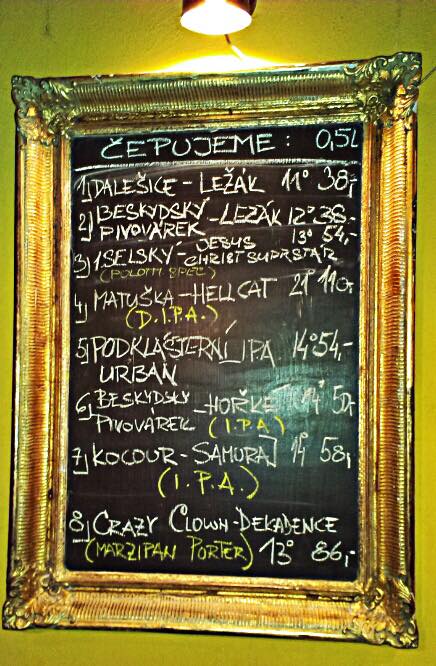 ČEPUJEME: 0,5L
1) DALEŠICE - LEŽÁK 11° 38,-
2) BESKYDSKÝ PIVOVÁREK - LEŽÁK 12° 38,-
3) 1SELSKÝ - JESUS CHRIST SUPRSTAR 13° 54,-
(POLOTM SPEC)
4) MATUŠKA - HELLCAT 21° 110,-
(D.I.PA.)
5) PODKLÁŠTERNÍ IPA 14° 54,-
URBAN
6) BESKYDSKÝ PIVOVÁREK - HOŘKÉ 14° 50,-
(I.PA)
7) KOCOUR - SAMURAJ 14° 58,-
(I.P.A.)
8) CRAZY CLOWN - DEKADENCE
(MARZIPAN PORTER) 13° 86,-